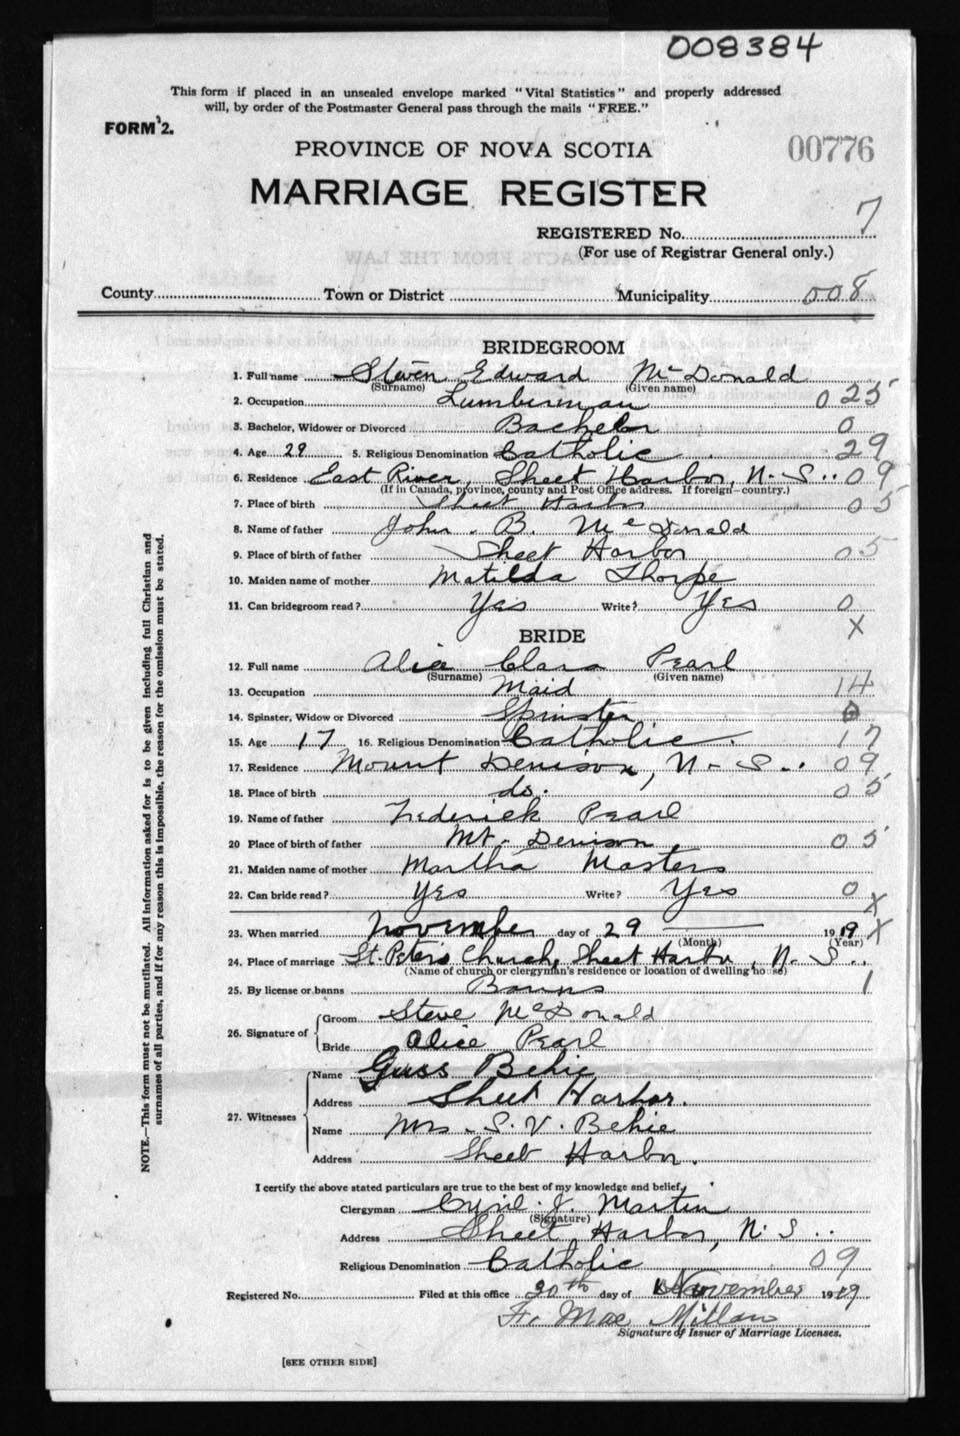 008384
This form if placed in an unsealed envelope marked "Vital Statistics" and properly addressed
will, by order of the Postmaster General pass through the mails "FREE."
FORM 2.
PROVINCE OF NOVA SCOTIA
00776
MARRIAGE REGISTER
REGISTERED No. 7
(For use of Registrar General only.)
County Town or District Municipality 008
BRIDEGROOM
1. Full name Steven Edward McDonald
(Surname) (Given name)
2. Occupation Lumberman 025
3. Bachelor, Widower or Divorced Bachelor 0
4. Age 29 5. Religious Denomination Catholic 29
6. Residence East River, Sheet Harbor, N. S. 09
(If in Canada, province, county and Post Office address. If foreign—country.)
7. Place of birth Sheet Harbor 05
8. Name of father John B. McDonald
9. Place of birth of father Sheet Harbor 05
10. Maiden name of mother Matilda Thorpe
11. Can bridegroom read? Yes Write? Yes 0
X
BRIDE
12. Full name Alice Clara Pearl
(Surname) (Given name)
13. Occupation Maid 14
14. Spinster, Widow or Divorced Spinster 0
15. Age 17 16. Religious Denomination Catholic. 17
17. Residence Mount Denison, N. S. 09
18. Place of birth do. 05
19. Name of father Frederick Pearl
20 Place of birth of father Mt. Denison 05
21. Maiden name of mother Martha Masters
22. Can bride read? Yes Write? Yes 0
X
23. When married November day of 29 1919 X
(Month) (Year)
24. Place of marriage St. Peter's Church, Sheet Harbor, N. S.
(Name of church or clergyman's residence or location of dwelling house)
25. By license or banns Banns 1
26. Signature of
Groom Steve McDonald
Bride Alice Pearl
27. Witnesses
Name Guss Behie
Address Sheet Harbor.
Name Mrs. S. V. Behie
Address Sheet Harbor.
I certify the above stated particulars are true to the best of my knowledge and belief.
Clergyman Cyril J. Martin
(Signature)
Address Sheet Harbor, N. S.
Religious Denomination Catholic 09
Registered No. Filed at this office 30th day of November 1919
Mac Millan
Signature of Issuer of Marriage Licenses.
[SEE OTHER SIDE]
NOTE.—This form must not be mutilated. All information asked for is to be given including full Christian and
surnames of all parties, and if for any reason this is impossible, the reason for the omission must be stated.